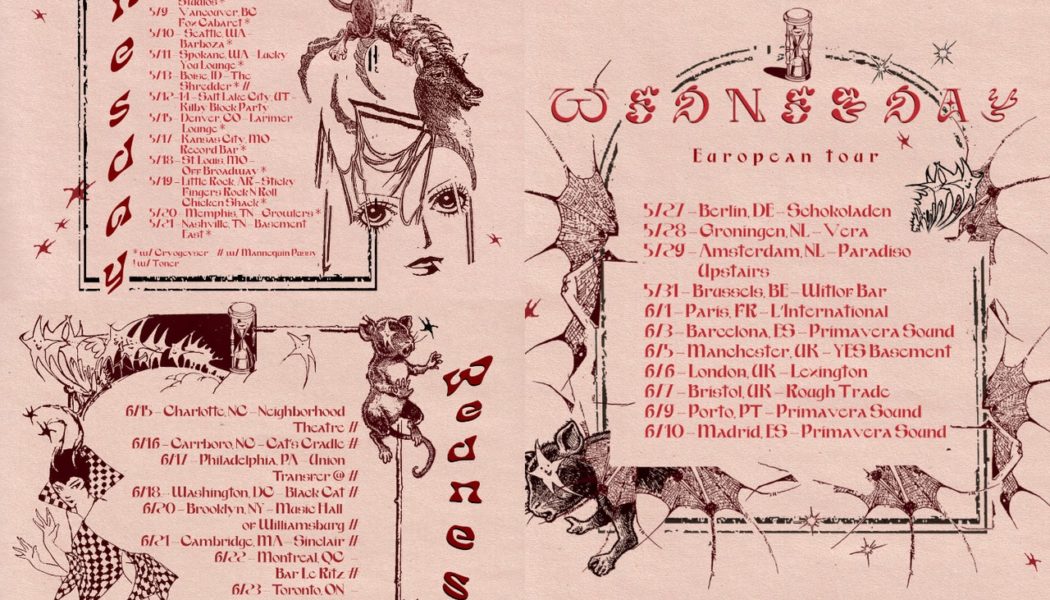 nesday
Studios *
5/9 – Vancouver, BC
Fox Cabaret *
5/10 – Seattle, WA –
Barboza *
5/11 – Spokane, WA – Lucky
You Lounge *
5/13 – Boise, ID – The
Shredder * //
5/12-14 – Salt Lake City, UT –
Kilby Block Party
5/15 – Denver, CO – Larimer
Lounge *
5/17 – Kansas City, MO –
Record Bar *
5/18 – St Louis, MO –
Off Broadway *
5/19 – Little Rock, AR – Sticky
Fingers Rock N Roll
Chicken Shack *
5/20 – Memphis, TN – Growlers *
5/21 – Nashville, TN – Basement
East *
* w/ Cryogeyser // w/ Mannequin Pussy
! w/ Toner
6/15 – Charlotte, NC – Neighborhood
Theatre //
6/16 – Carrboro, NC – Cat's Cradle //
6/17 – Philadelphia, PA – Union
Transfer @ //
6/18 – Washington, DC – Black Cat //
6/20 – Brooklyn, NY – Music Hall
of Williamsburg //
6/21 – Cambridge, MA – Sinclair //
6/22 – Montreal, QC –
Bar Le Ritz //
6/23 – Toronto, ON –
Wednes
WEDNESDAY
European tour
5/27 – Berlin, DE – Schokoladen
5/28 – Groningen, NL – Vera
5/29 – Amsterdam, NL – Paradiso
Upstairs
5/31 – Brussels, BE – Witlof Bar
6/1 – Paris, FR – L'International
6/3 – Barcelona, ES – Primavera Sound
6/5 – Manchester, UK – YES Basement
6/6 – London, UK – Lexington
6/7 – Bristol, UK – Rough Trade
6/9 – Porto, PT – Primavera Sound
6/10 – Madrid, ES – Primavera Sound